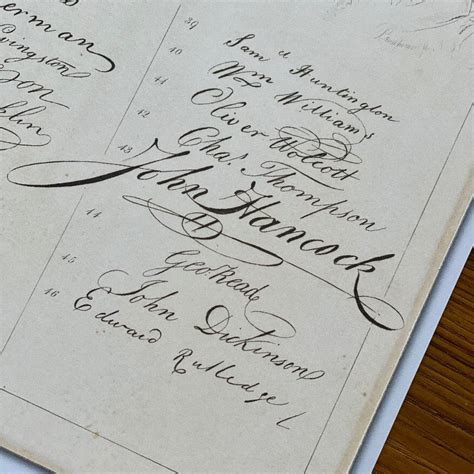 erman
ivingston
son
klin
39
40
42
43
44
45
46
Sam d Huntington
Wm Williams
Oliver Wolcott
Chas. Thompson
John Hancock
H
Geo Read
John Dickinson
Edward Rutledge